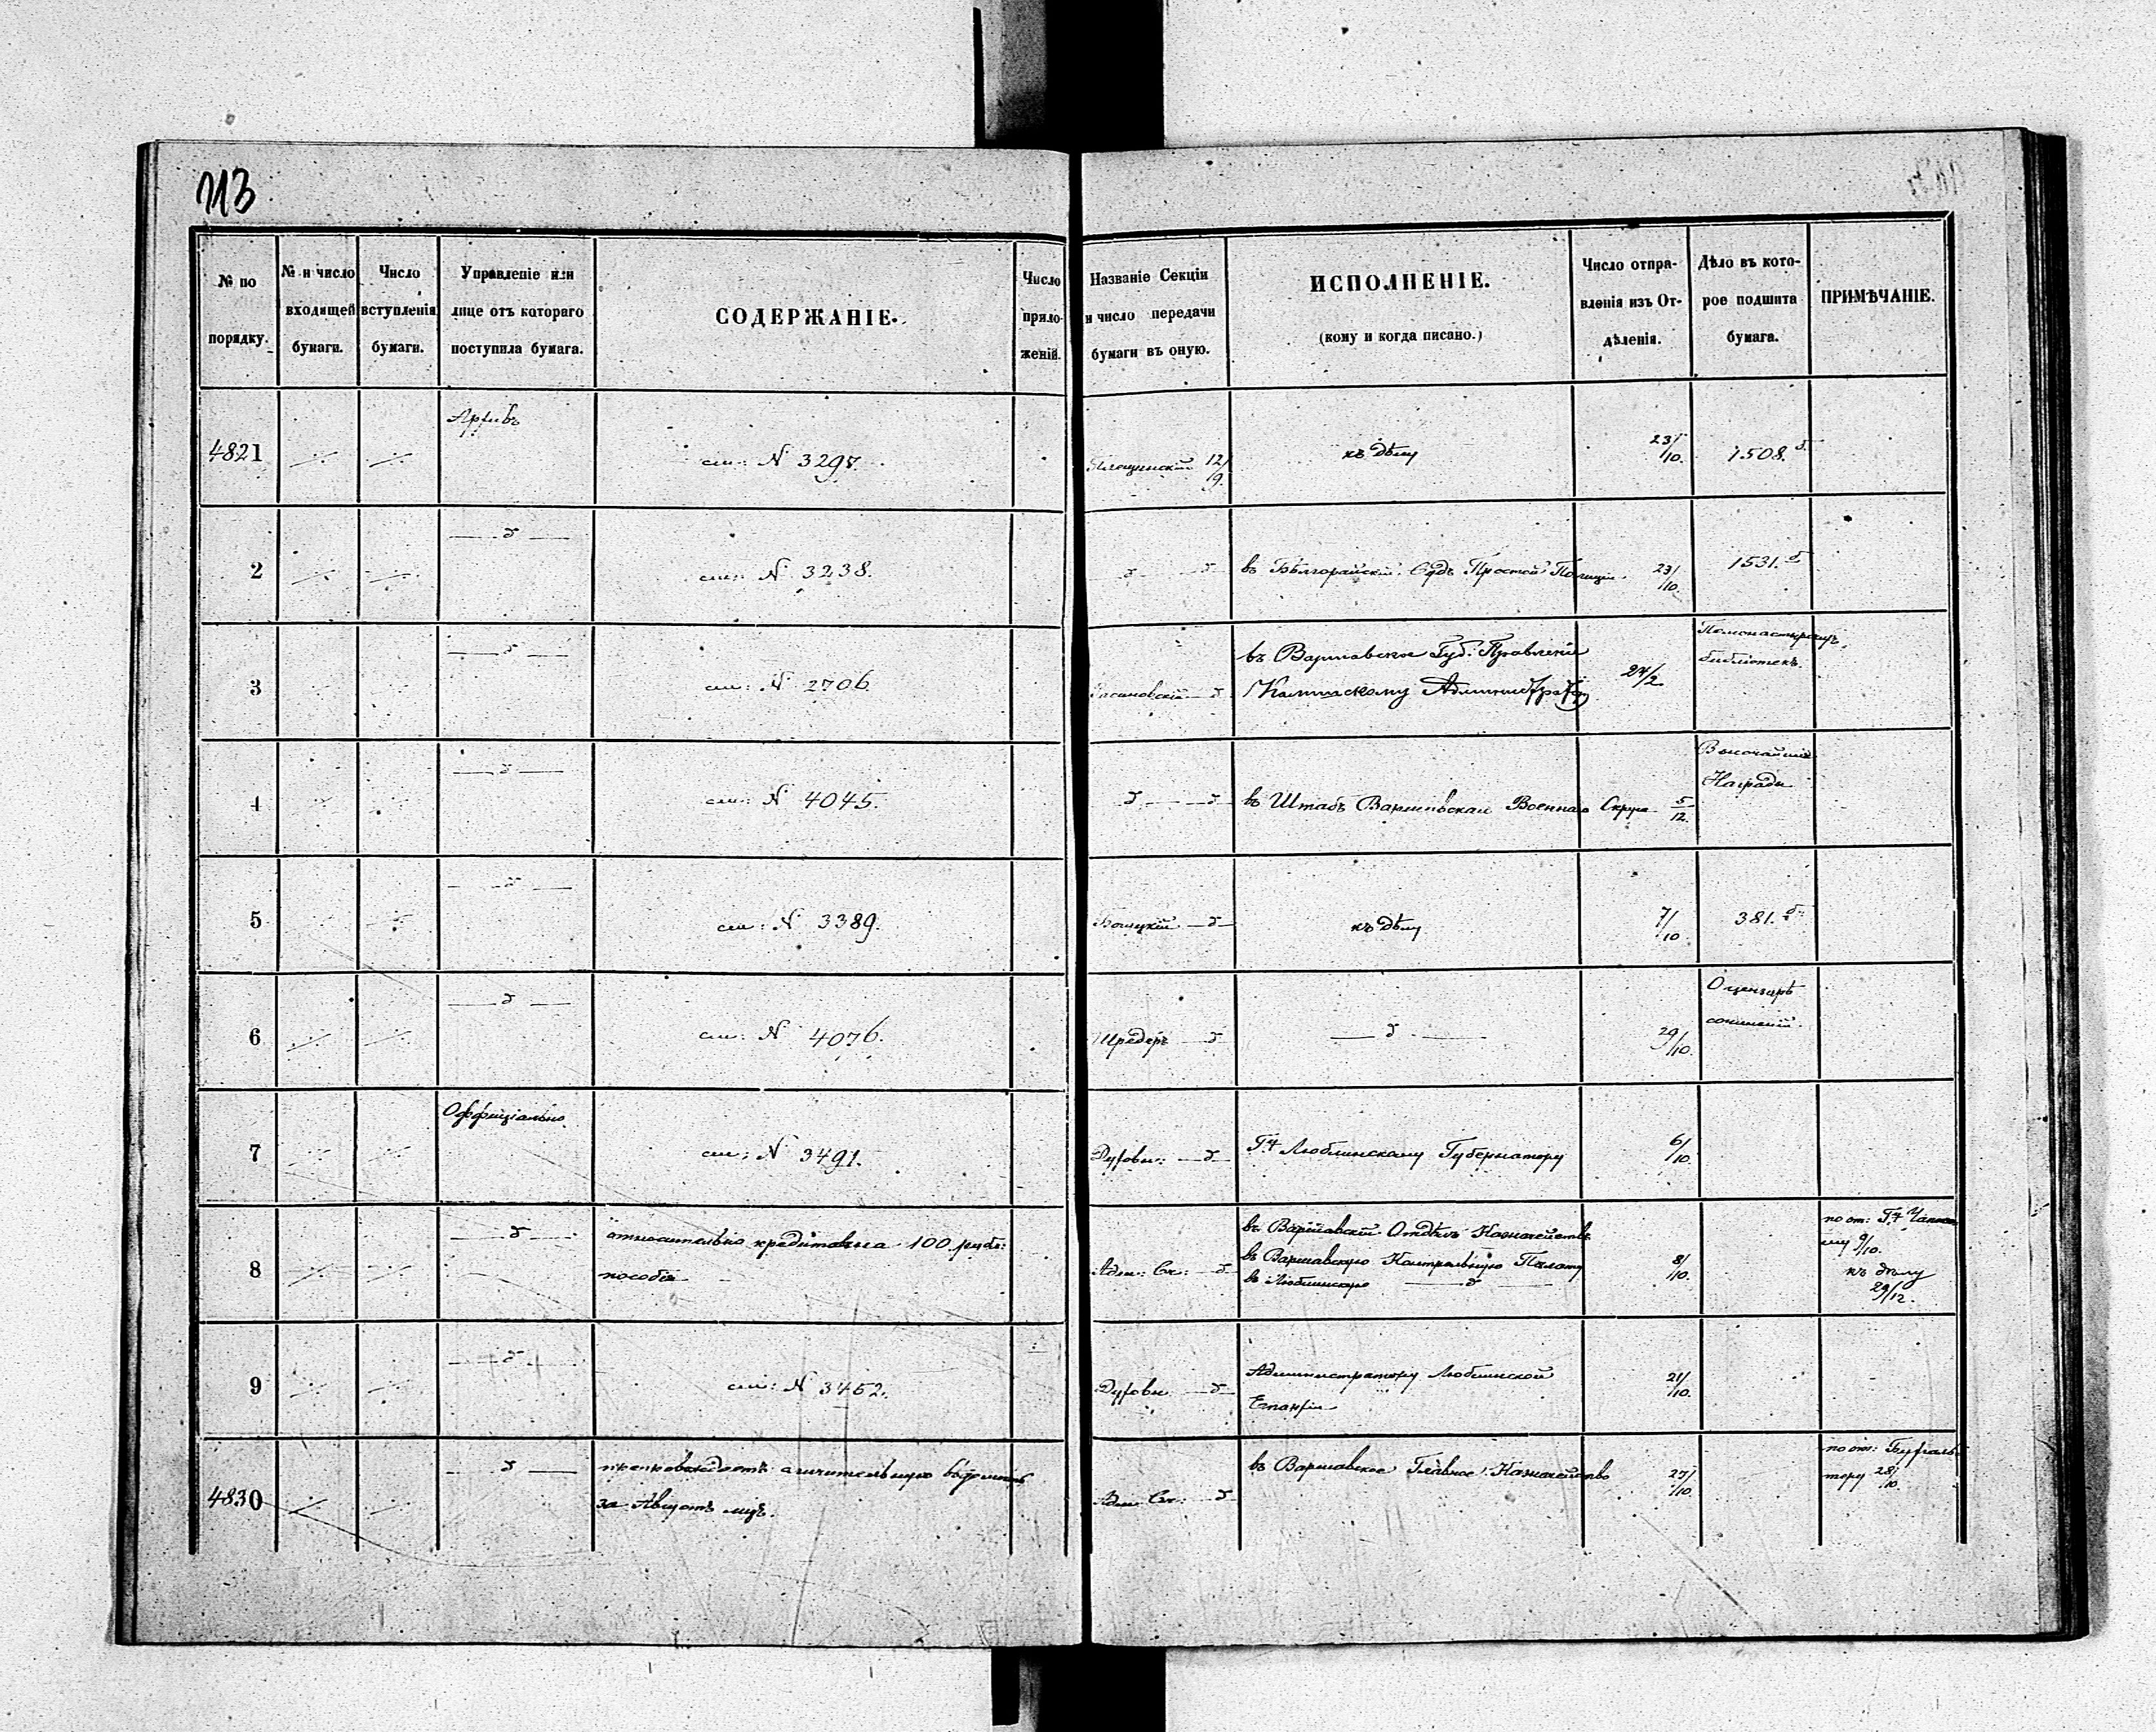 713
№ по порядку.
№ и число входящей бумаги.
Число вступленія бумаги.
Управленіе или лице отъ котораго поступила бумага.
СОДЕРЖАНІЕ.
Число приложеній.
Названіе Секціи и число передачи бумаги въ оную.
ИСПОЛНЕНІЕ.
(кому и когда писано.)
Число отправленія изъ Отдѣленія.
Дѣло въ которое подшита бумага.
ПРИМѢЧАНІЕ.
4821 Архивъ см: N 3297. 12/9. къ дѣлу 23/10. 1508.
2 см: N 3238. въ Бѣлгорайскій Судъ Простой Полиціи 23/10. 1531.
3 см: N 2706. въ Варшавское Губ: Правленіе
Администратору 24/2
библіотекъ.
4 см: N 4045. въ Штабъ Варшавскаго Военнаго Округа 5/12.
Высочайшія
Награды
5 см: N 3389. къ дѣлу 7/10 381.
6 см: N 4076. Шредеръ 29/10.
О цензурѣ
сочиненій.
7 Оффиціально. см: N 3491. Духовн: Люблинскому Губернатору 6/10.
8 относительно кредитованія 100 рубл:
пособія
Адм: Сч:
въ Варшавскій Отдѣлъ Казначейства
въ Варшавскую Контрольную Палату
въ Люблинскую
8/10.
по от:
9/10.
къ дѣлу
29/12.
9 см: N 3452. Духовн
Администратору Люблинской
Епархіи
21/10.
4830 препровождаетъ вѣдомость
за Августъ мцъ.
Адм: Сч:
въ Варшавское Главное Казначейство 27/10.
по от: Бухгалтеру 28/10.